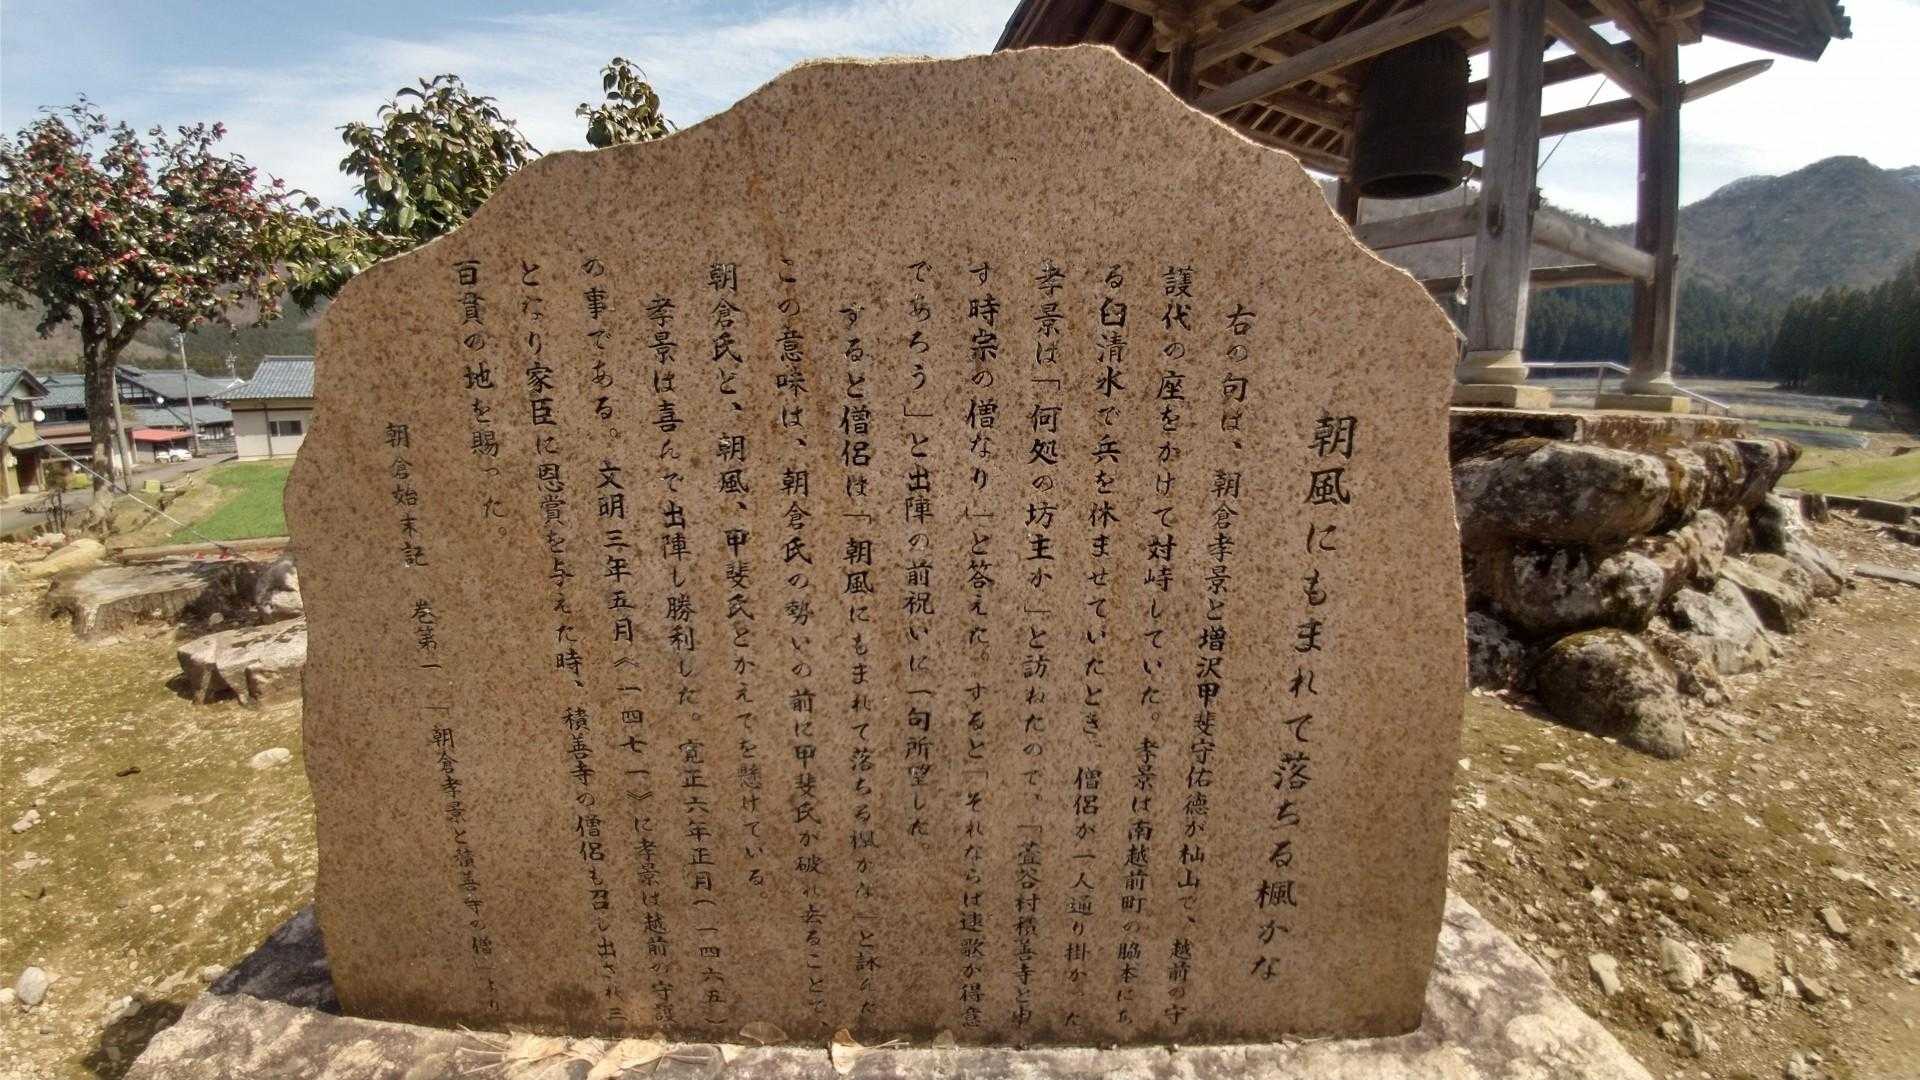 朝風にもまれて落ちる楓かな
右の句は、朝倉孝景と増沢甲斐守佑徳が杣山で、越前の守
護代の座をかけて対峙していた。孝景は南越前町の脇本にあ
る臼清水で兵を休ませていたとき、僧侶が一人通り掛かった
孝景は「何処の坊主か」と訪ねたので、「萱谷村積善寺と申
す時宗の僧なり」と答えた。すると「それならば連歌が得意
であろう」と出陣の前祝いに一句所望した。
ずると僧侶は「朝風にもまれて落ちる楓かな」と詠んだ
この意味は、朝倉氏の勢いの前に甲斐氏が破れ去ることで、
朝倉氏と、朝風、甲斐氏とかえでを懸けている。
孝景は喜んで出陣し勝利した。寛正六年正月(一四六五)
の事である。文明三年五月《一四七一》に孝景は越前の守護
となり家臣に恩賞を与えた時、積善寺の僧侶も召し出され三
百貫の地を賜った。
朝倉始末記 巻第一 「朝倉孝景と積善寺の僧」より